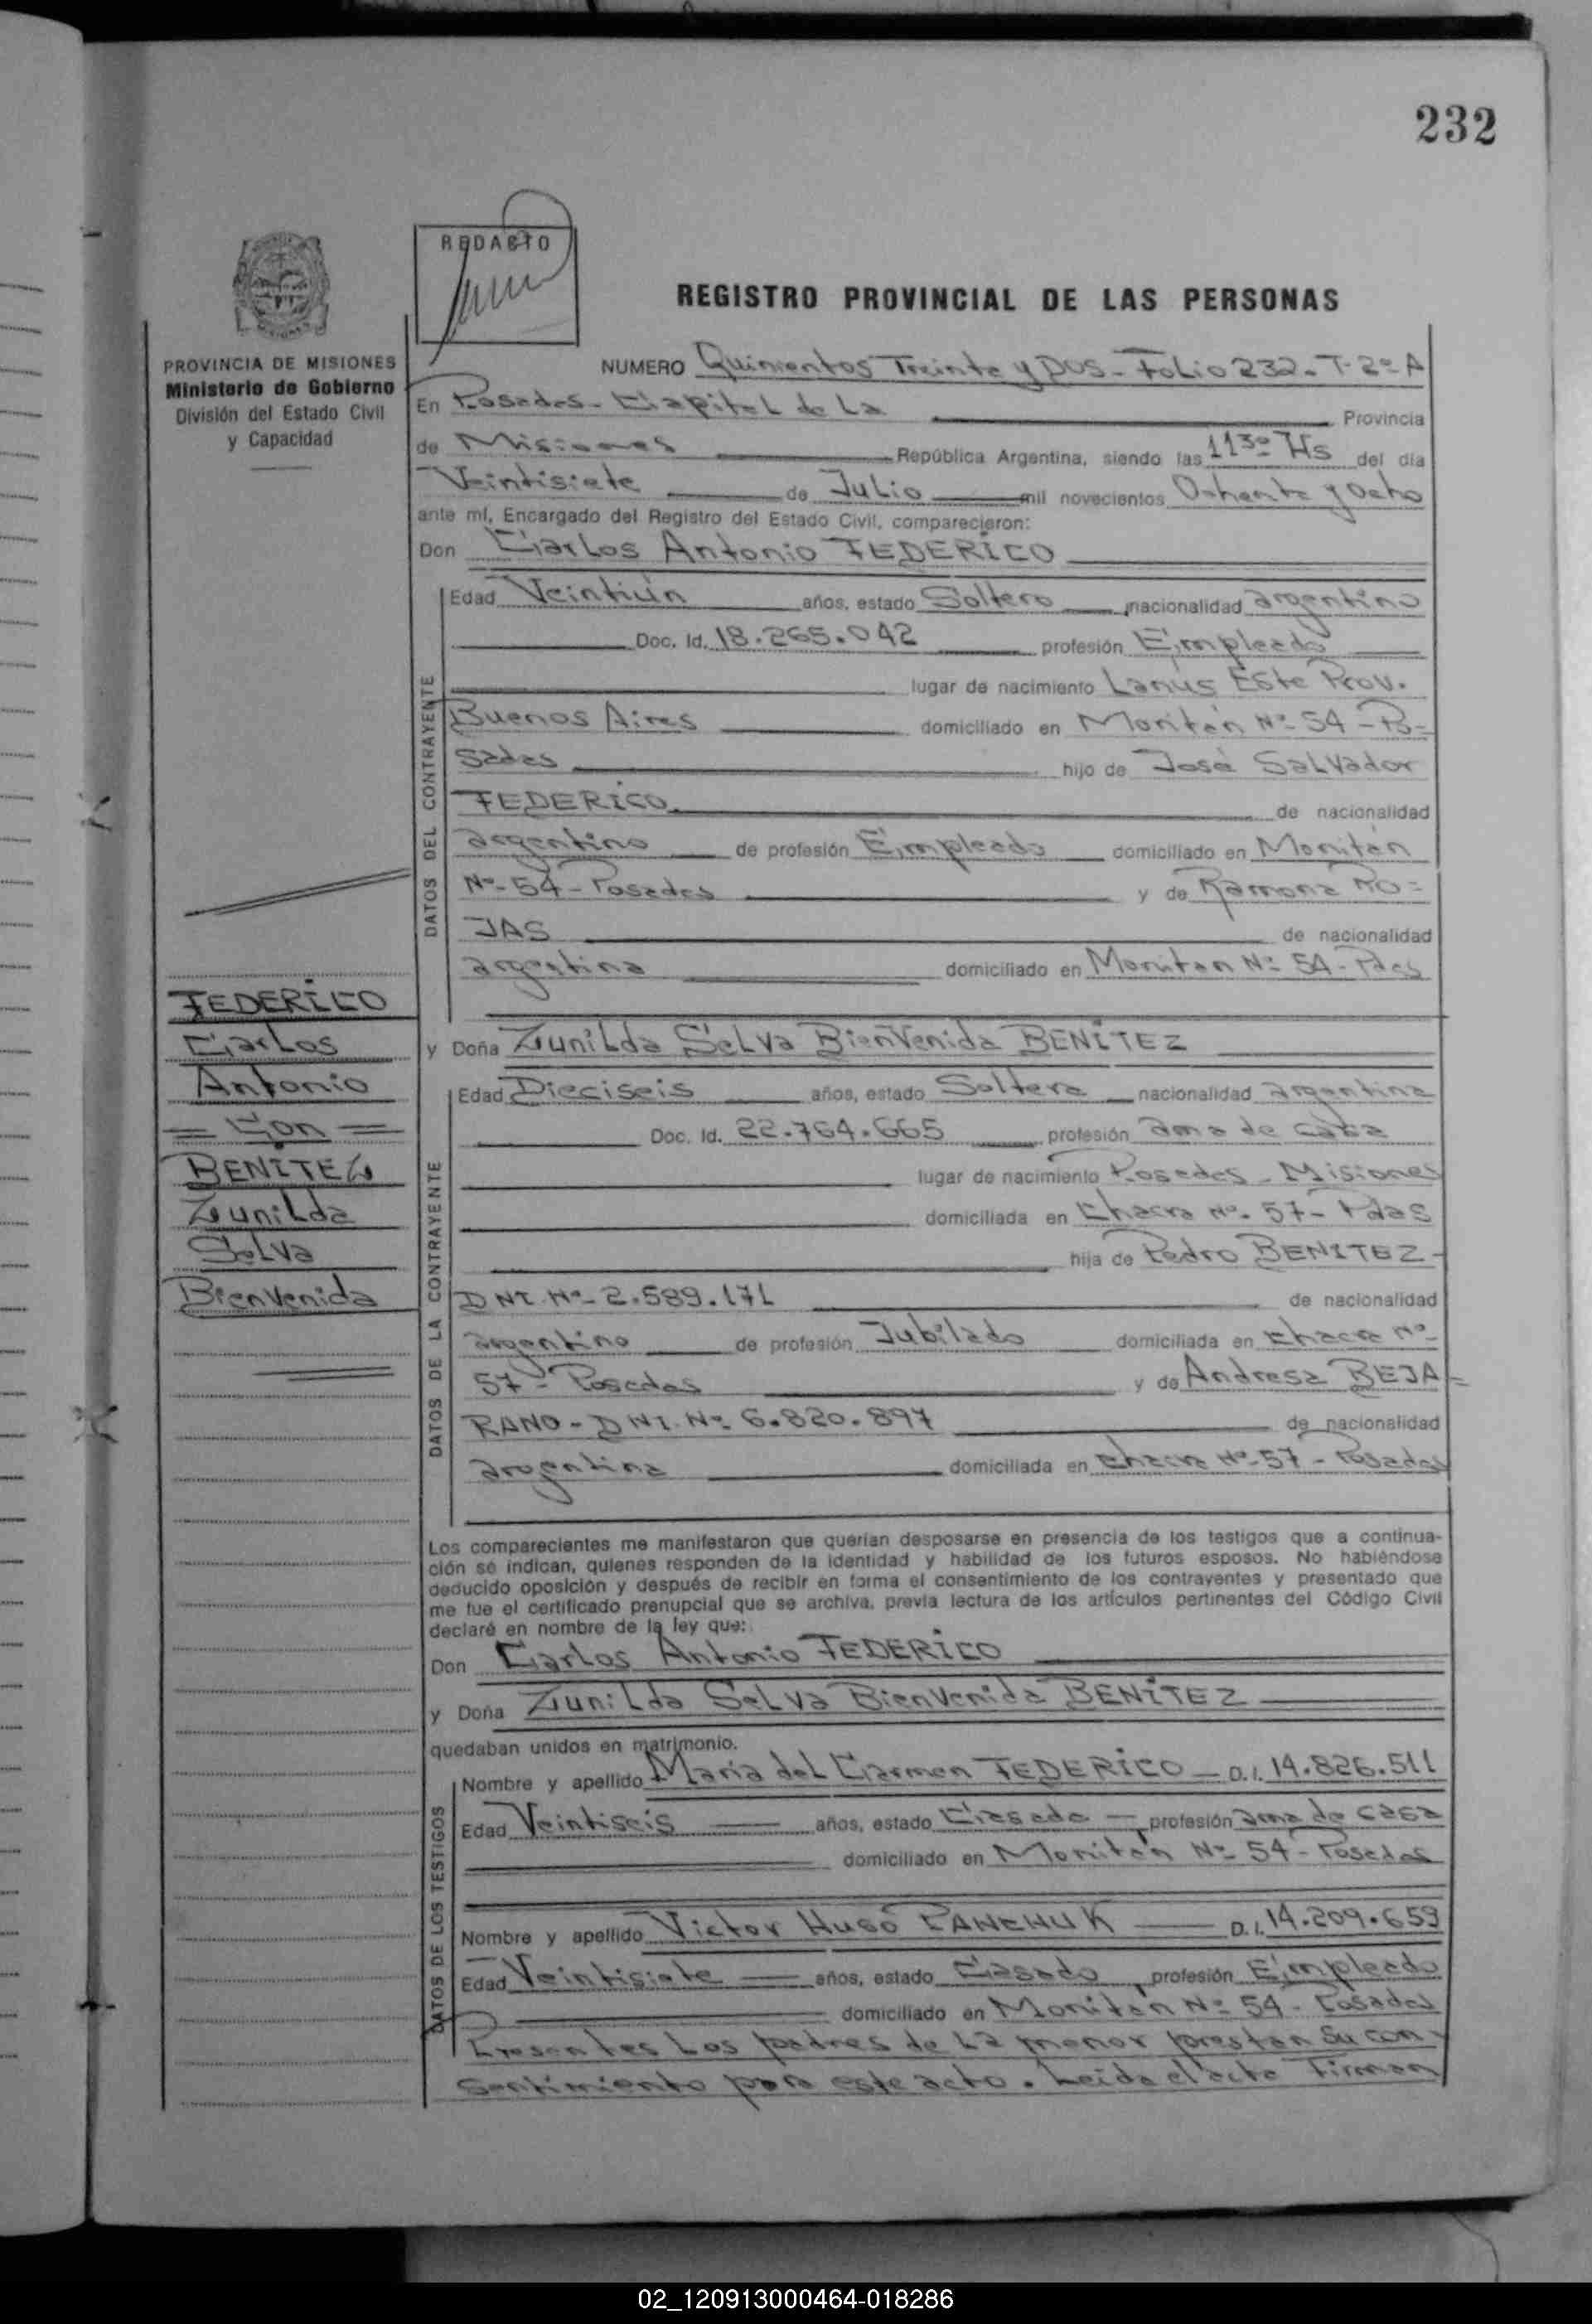 232
REDACTO
REGISTRO PROVINCIAL DE LAS PERSONAS
PROVINCIA DE MISIONES
Ministerio de Gobierno
División del Estado Civil
y Capacidad
NUMERO Quinientos Treinta y Dos - Folio 232 - T- 2º A
En Posadas - Capital de La Provincia
de Misiones República Argentina, siendo las 1130 Hs del día
Veintisiete de Julio mil novecientos Ochenta y Ocho
ante mí, Encargado del Registro del Estado Civil, comparecieron:
Don Carlos Antonio FEDERICO
DATOS DEL CONTRAYENTE
Edad Veintiún años, estado Soltero nacionalidad argentino
Doc. Id. 18.265.042 profesión Empleado
lugar de nacimiento Lanús Este Prov.
Buenos Aires domiciliado en Moritán Nº 54 - Po-
sadas hijo de José Salvador
FEDERICO de nacionalidad
argentino de profesión Empleado domiciliado en Moritán
Nº- 54 - Posadas y de Ramona RO=
JAS de nacionalidad
argentina domiciliado en Moritan Nº 54 - Pdas
FEDERICO
Carlos
Antonio
= Con =
BENITEZ
Zunilda
Selva
Bienvenida
y Doña Zunilda Selva Bienvenida BENITEZ
DATOS DE LA CONTRAYENTE
Edad Dieciseis años, estado Soltera nacionalidad argentina
Doc. Id. 22.764.665 profesión ama de casa
lugar de nacimiento Posadas - Misiones
domiciliada en Chacra Nº- 57 - Pdas
hija de Pedro BENITEZ -
DNI. Nº- 2.589.171 de nacionalidad
argentino de profesión Jubilado domiciliada en Chacra Nº
57 - Posadas y de Andresa BEJA=
RANO - DNI. Nº 6.820.897 de nacionalidad
argentina domiciliada en Chacra Nº-57 - Posadas
Los comparecientes me manifestaron que querían desposarse en presencia de los testigos que a continua-
ción se indican, quienes responden de la identidad y habilidad de los futuros esposos. No habiéndose
deducido oposición y después de recibir en forma el consentimiento de los contrayentes y presentado que
me fue el certificado prenupcial que se archiva, previa lectura de los artículos pertinentes del Código Civil
declaré en nombre de la ley que:
Don Carlos Antonio FEDERICO
y Doña Zunilda Selva Bienvenida BENITEZ
quedaban unidos en matrimonio.
DATOS DE LOS TESTIGOS
Nombre y apellido María del Carmen FEDERICO - D.I. 14.826.511
Edad Veintiseis años, estado Casada - profesión ama de casa
domiciliado en Moritán Nº 54 - Posadas
Nombre y apellido Victor Hugo PANCHUK D.I. 14.209.659
Edad Veintisiete años, estado Casado profesión Empleado
domiciliado en Moritán Nº 54 - Posadas
Presentes Los padres de La menor prestan su con-
sentimiento para este acto. Leída el acta Firman
02_120913000464-018286